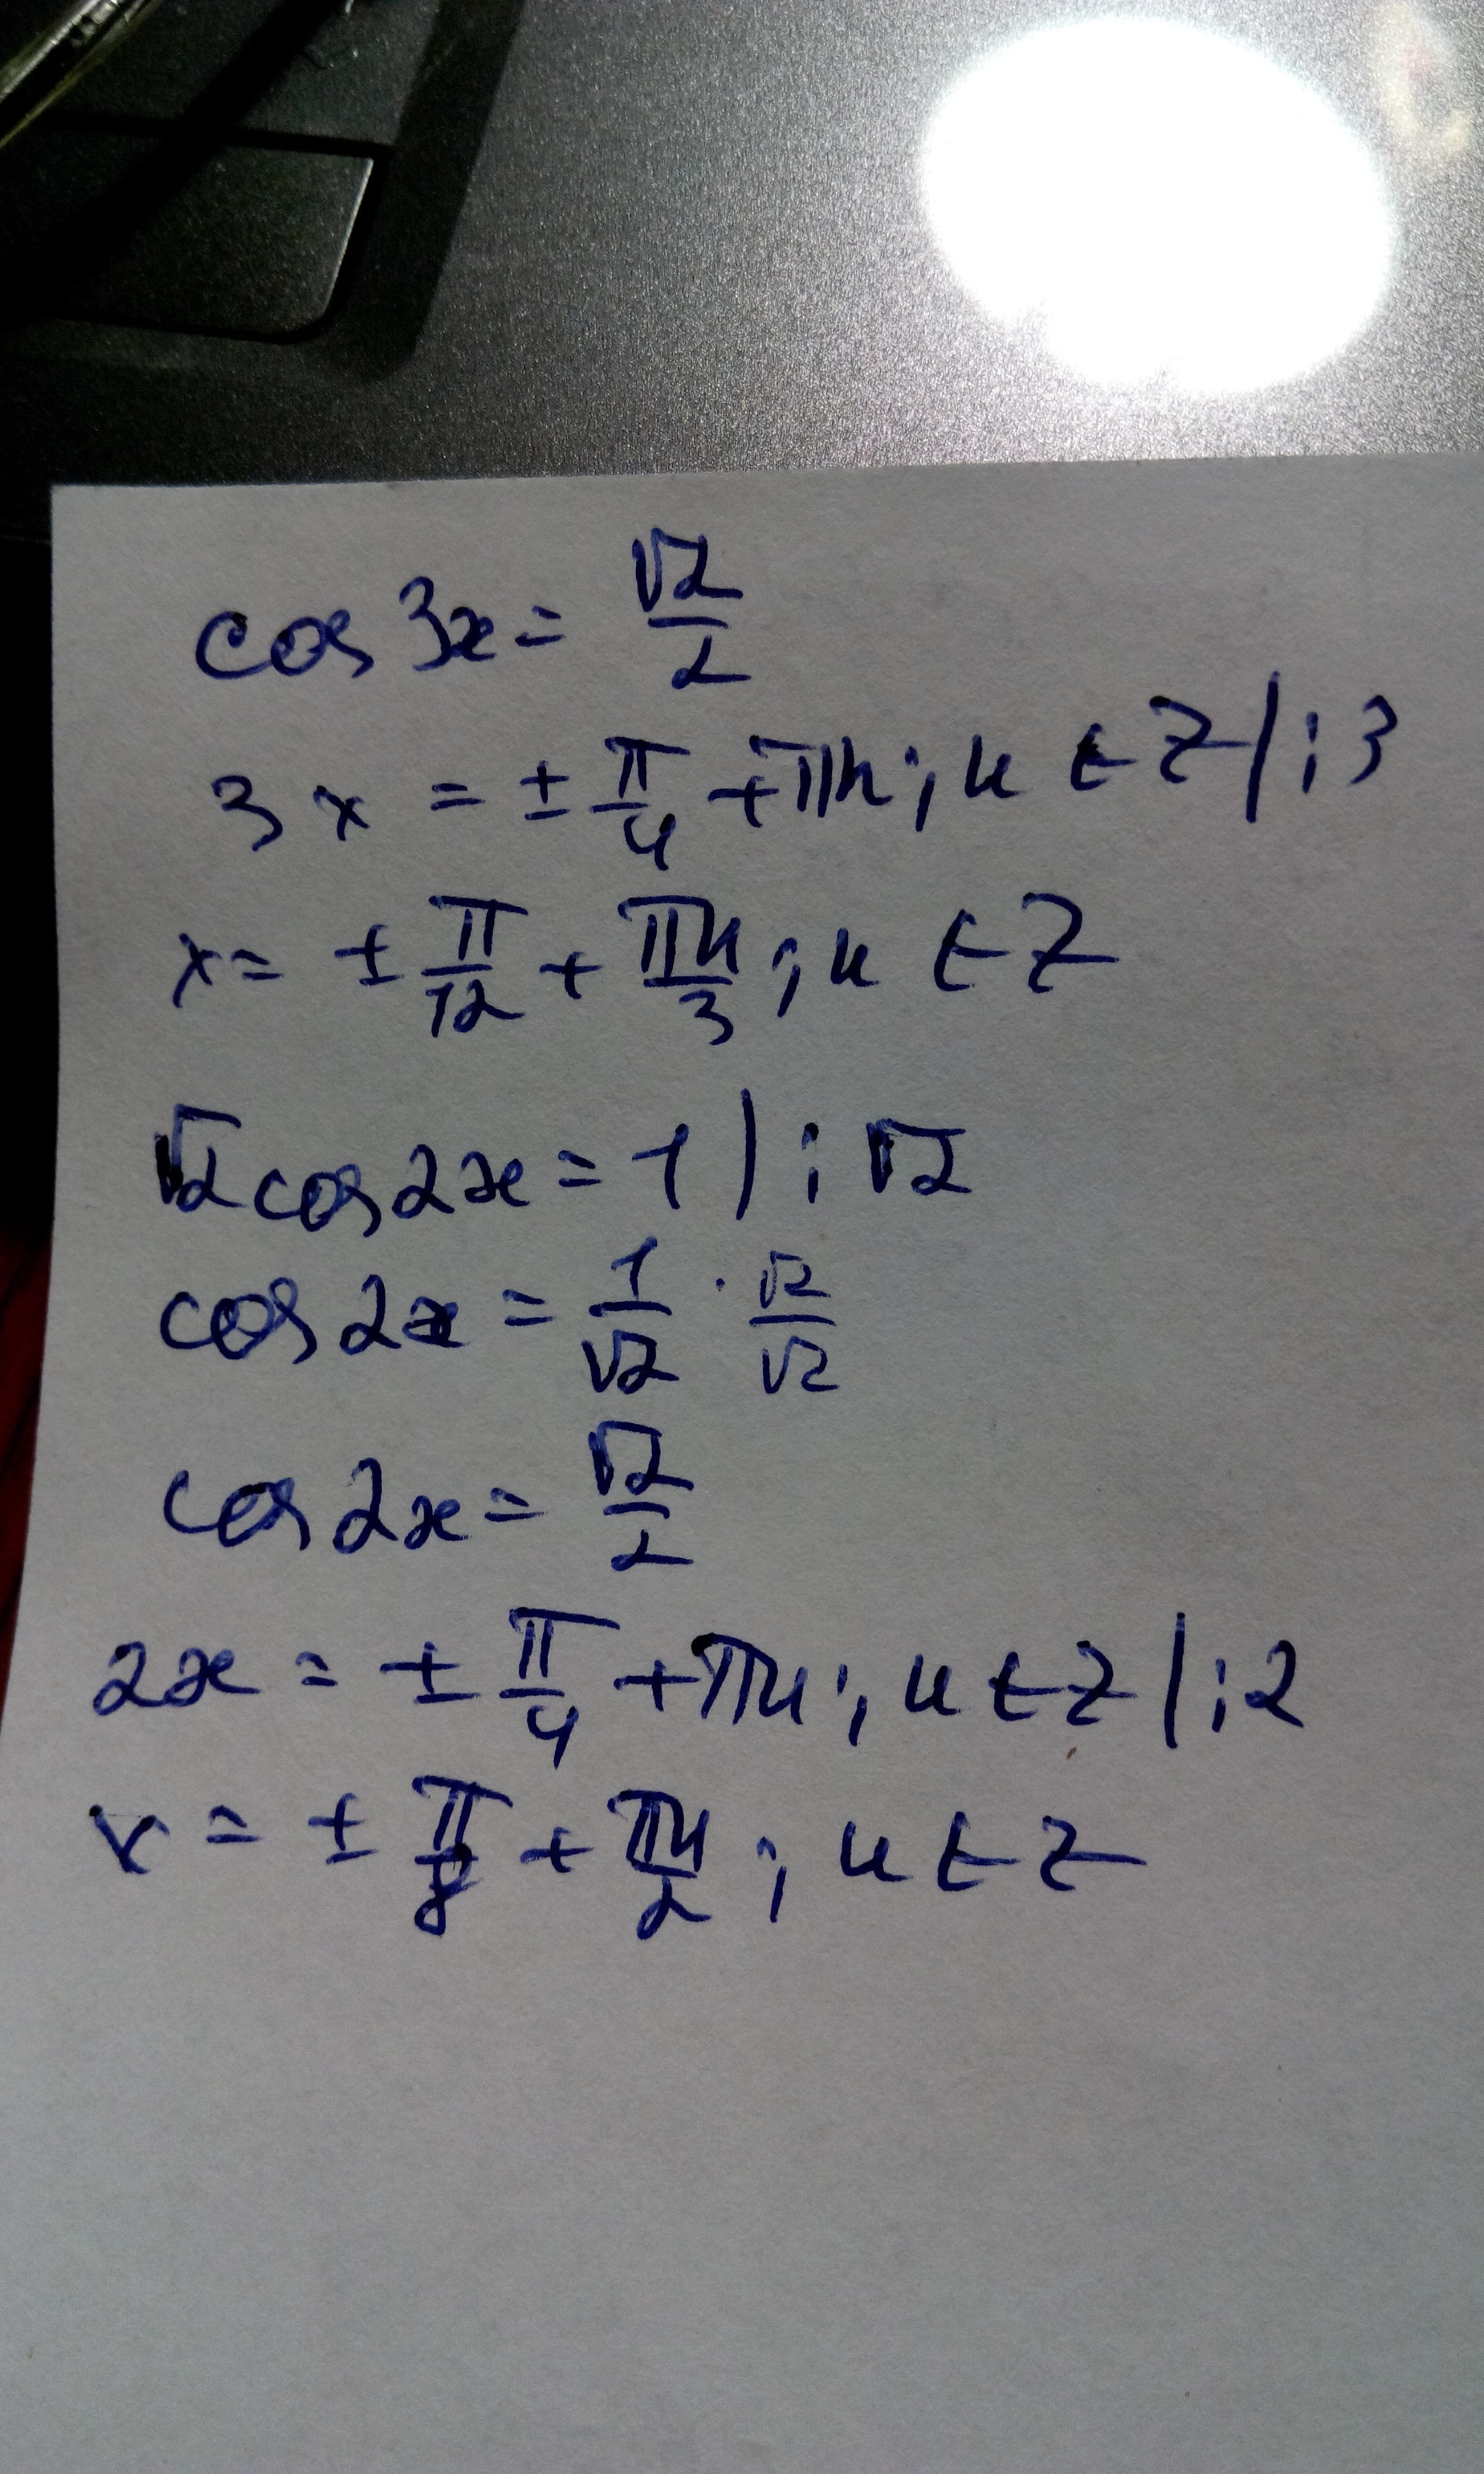 cos 3x = √2/2
3x = ± π/4 + πn; n ∈ Z | : 3
x = ± π/12 + πn/3; n ∈ Z
√2 cos 2x = 1 | : √2
cos 2x = 1/√2 · √2/√2
cos 2x = √2/2
2x = ± π/4 + πn; n ∈ Z | : 2
x = ± π/8 + πn/2; n ∈ Z